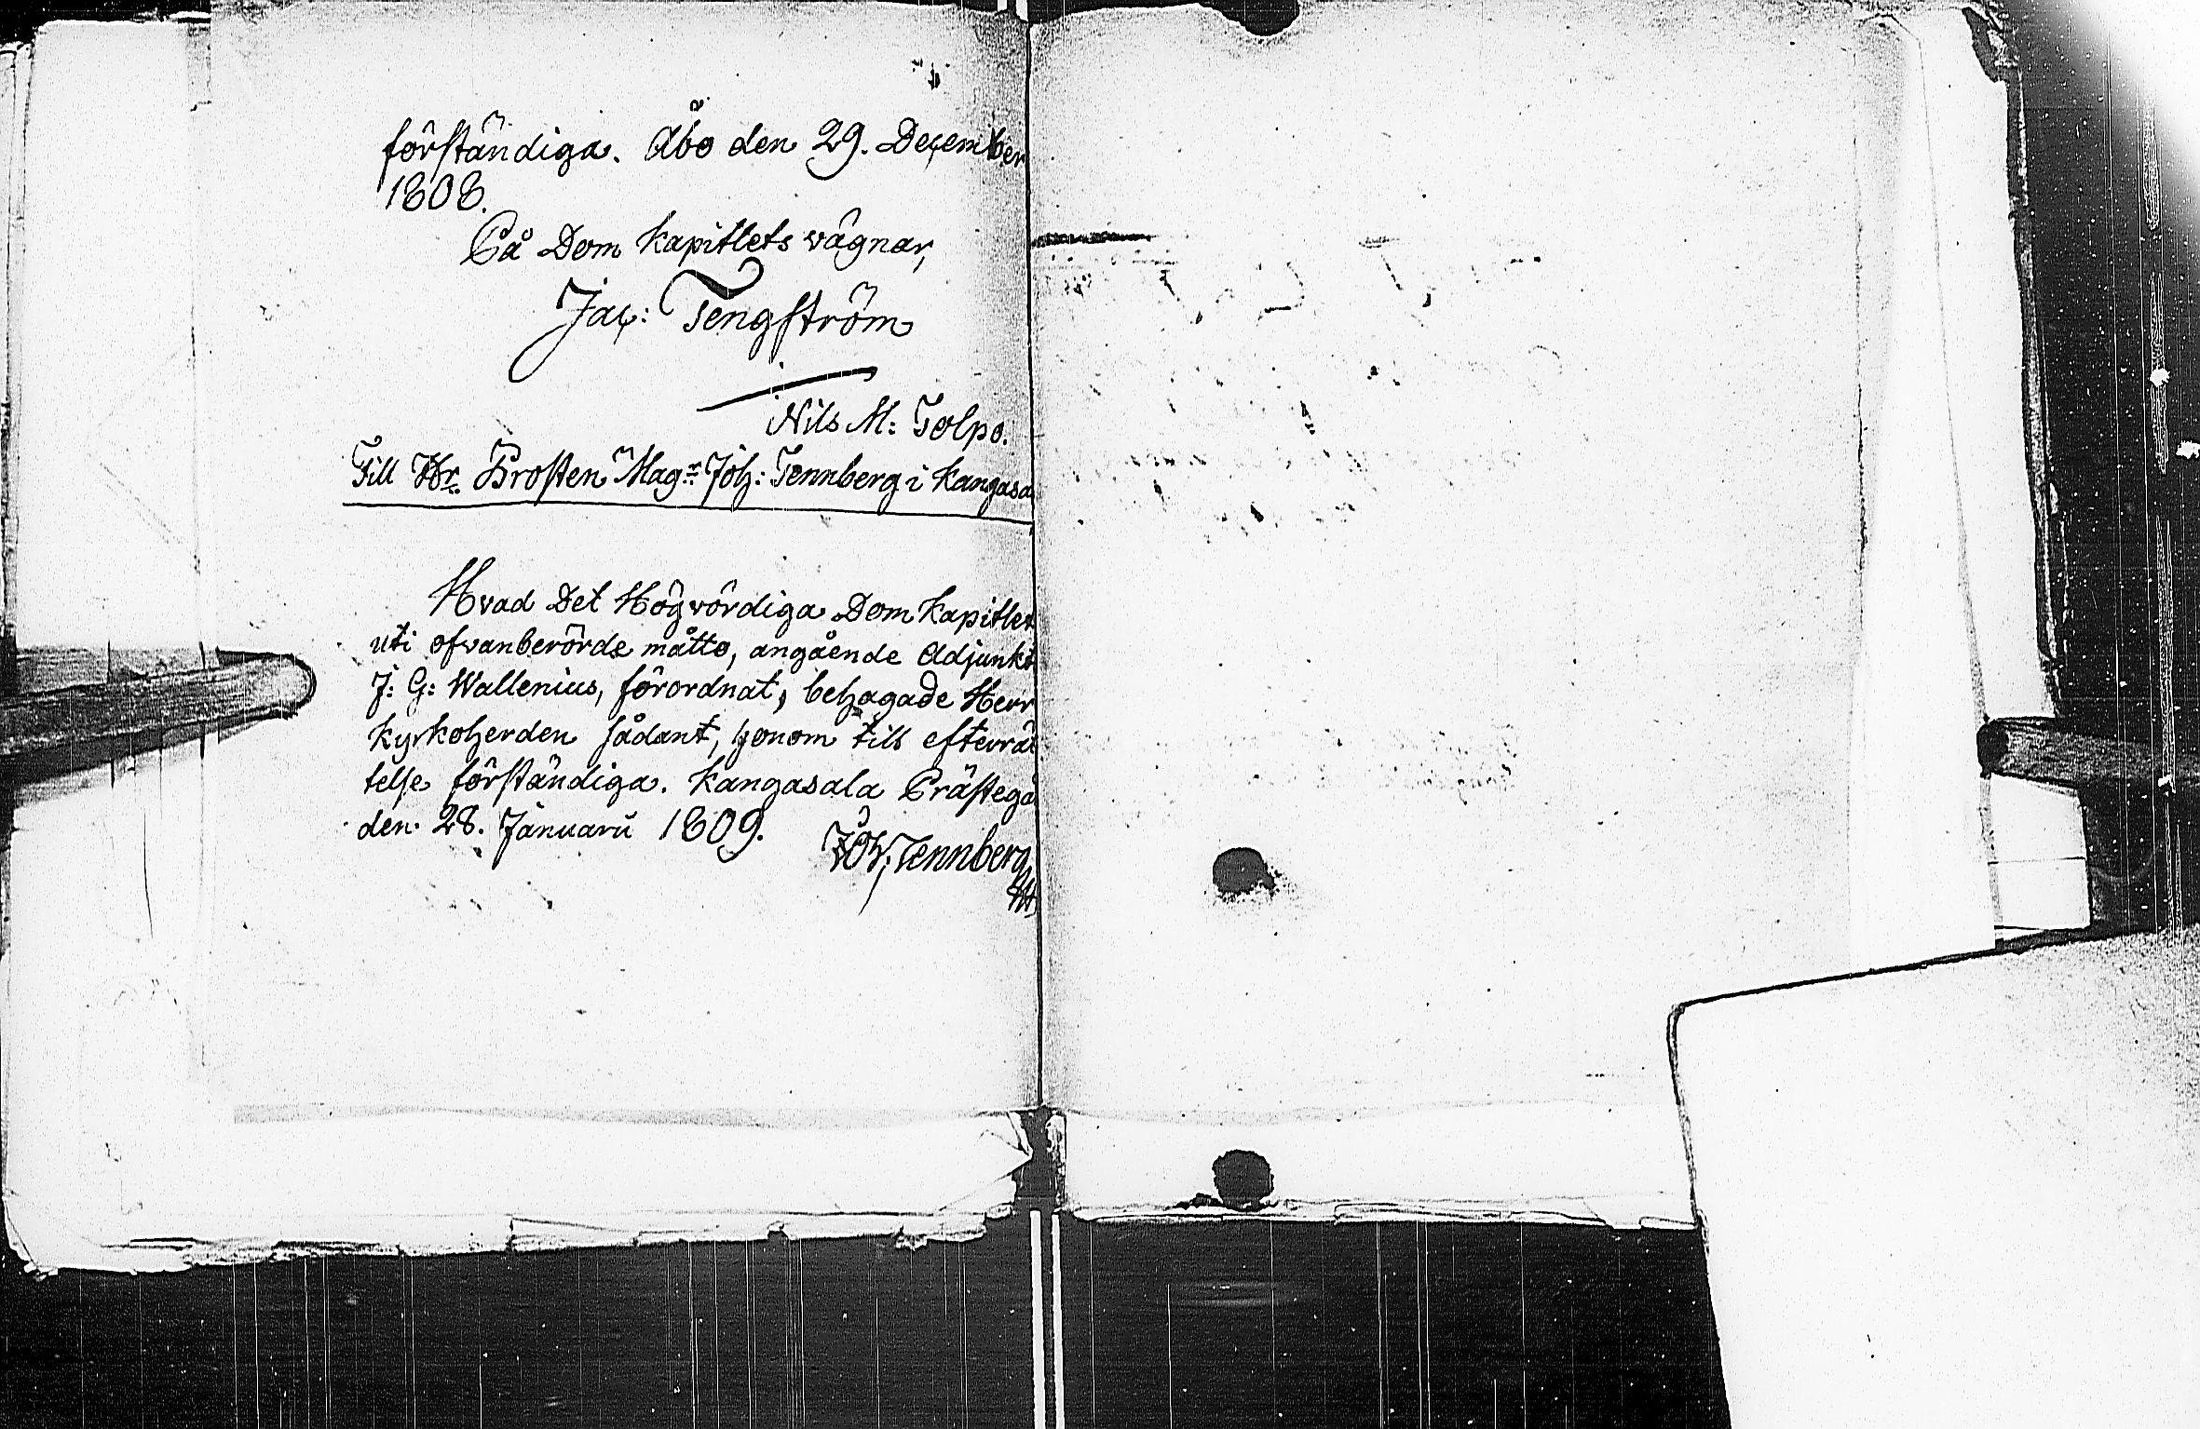 förständiga. Åbo den 29. December
1808.
På Dom Kapitlets vägnar,
Jac: Tengström
Nils M: Tolpo.
Till Hr. Prosten Magr. Joh: Tennberg i Kangasa
Hvad Det Högvördiga Dom Kapitlet
uti ofvanberörde måtto, angående Adjunkt
J: G: Wallenius, förordnat, behagade Herr
Kyrkoherden sådant, honom till efterrät
telse förständiga. Kangasala Prästegå
den 28. Januarii 1809.
Joh: Tennberg